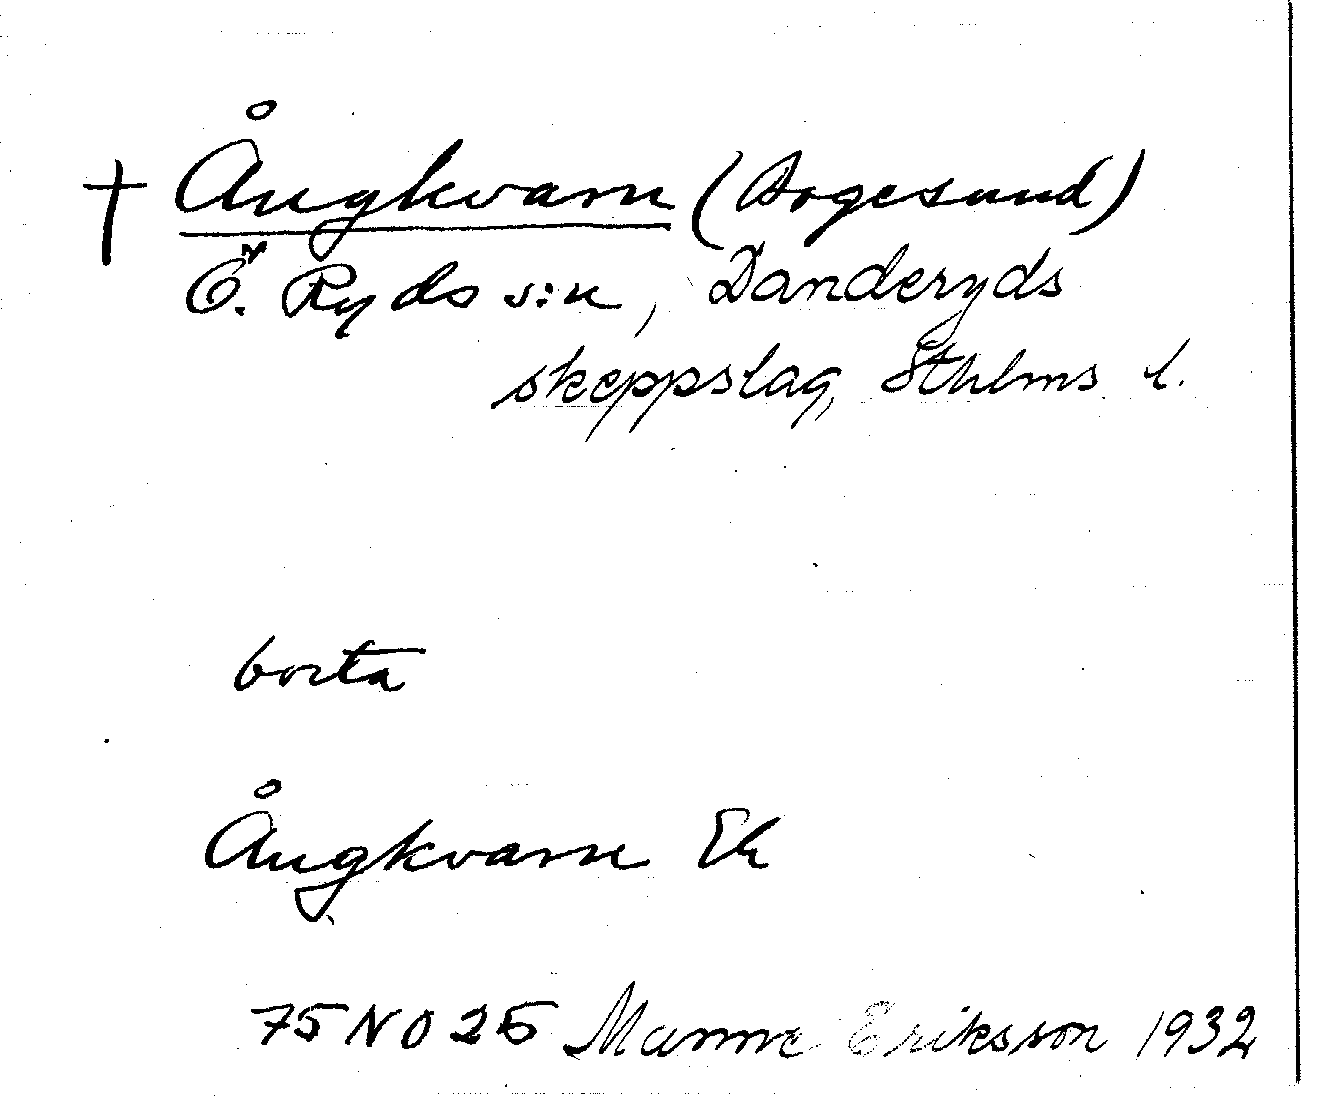 † Ångkvarn (Bogesund)
Ö. Ryds s:n, Danderyds
skeppslag, Sthlms l.
borta
Ångkvarn Ek
75 NO 25 Manne Eriksson 1932